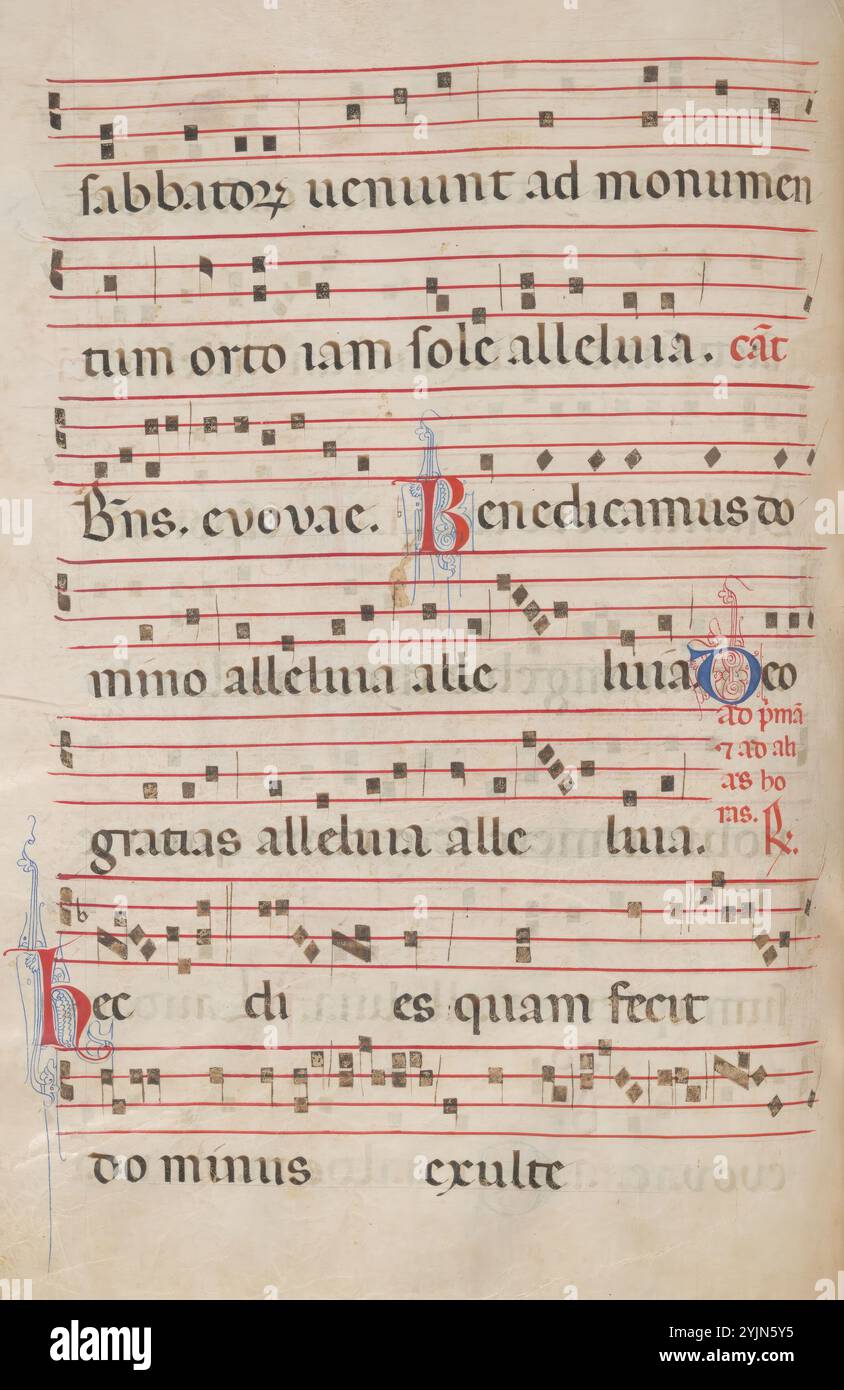 sabbatoꝝ ueniunt ad monumen
tum orto iam sole alleluia. cãt
B̃ns. evovae. Benedicamus do
mino alleluia alle luia. Deo
ad p̃mã
⁊ ad ali
as ho
ras. ℟.
gratias alleluia alle luia.
hec di es quam fecit
do minus exulte
alamy
Image ID: 2YJN5Y5
www.alamy.com